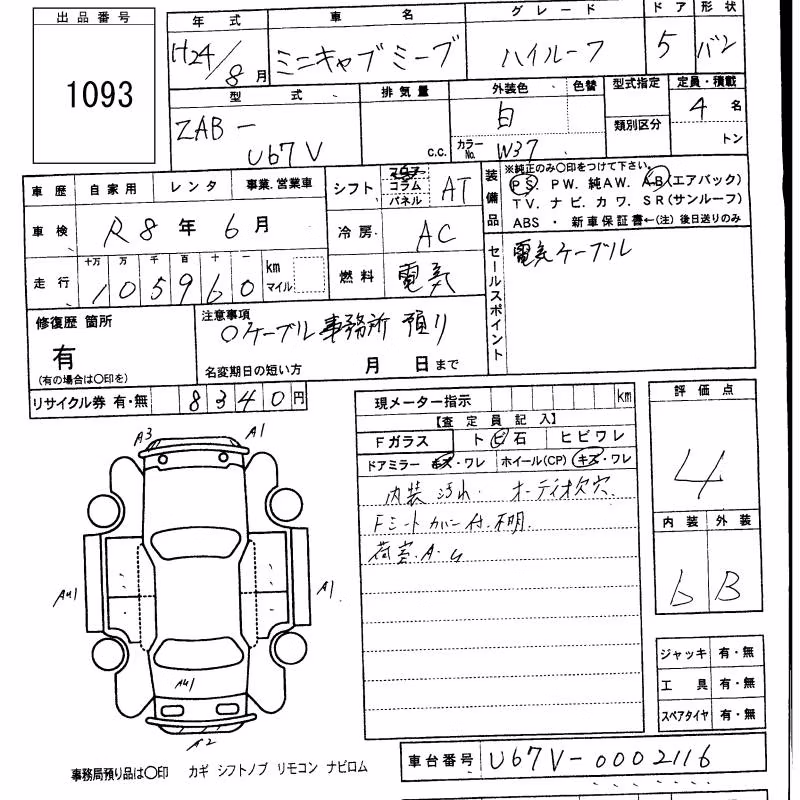 出品番号
1093
年式 車名 グレード ドア 形状
H24/8月 ミニキャブミーブ ハイルーフ 5 バン
型式 排気量 外装色 色替 型式指定 定員・積載
ZAB－ 白 4名
U67V c.c. カラーNo. W37 類別区分 トン
車歴 自家用 レンタ 事業.営業車
車検 R8年6月
走行 十万 万 千 百 十 一 km マイル
105960
シフト コラム パネル AT
冷房 AC
燃料 電気
装備品
※純正のみ〇印をつけて下さい。
PS. PW. 純AW. AB(エアバック)
TV. ナビ. カワ. SR(サンルーフ)
ABS ・ 新車保証書←(注) 後日送りのみ
セールスポイント
電気ケーブル
修復歴 箇所
有
(有の場合は〇印を)
注意事項
○ケーブル事務所預り
名変期日の短い方 月 日まで
リサイクル券 有・無 8340円
現メーター指示 km
【査定員記入】
Fガラス ト ビ 石 ヒビワレ
ドアミラー キズ・ワレ ホイール(CP) キズ・ワレ
内装汚れ. オーディオ欠穴
Fシートカバー付.不明.
荷室.A.U
評価点
4
内装 外装
b B
ジャッキ 有・無
工具 有・無
スペアタイヤ 有・無
A3 A1
AU1 A1
AU1
A2
事務局預り品は〇印 カギ シフトノブ リモコン ナビロム
車台番号 U67V-0002116